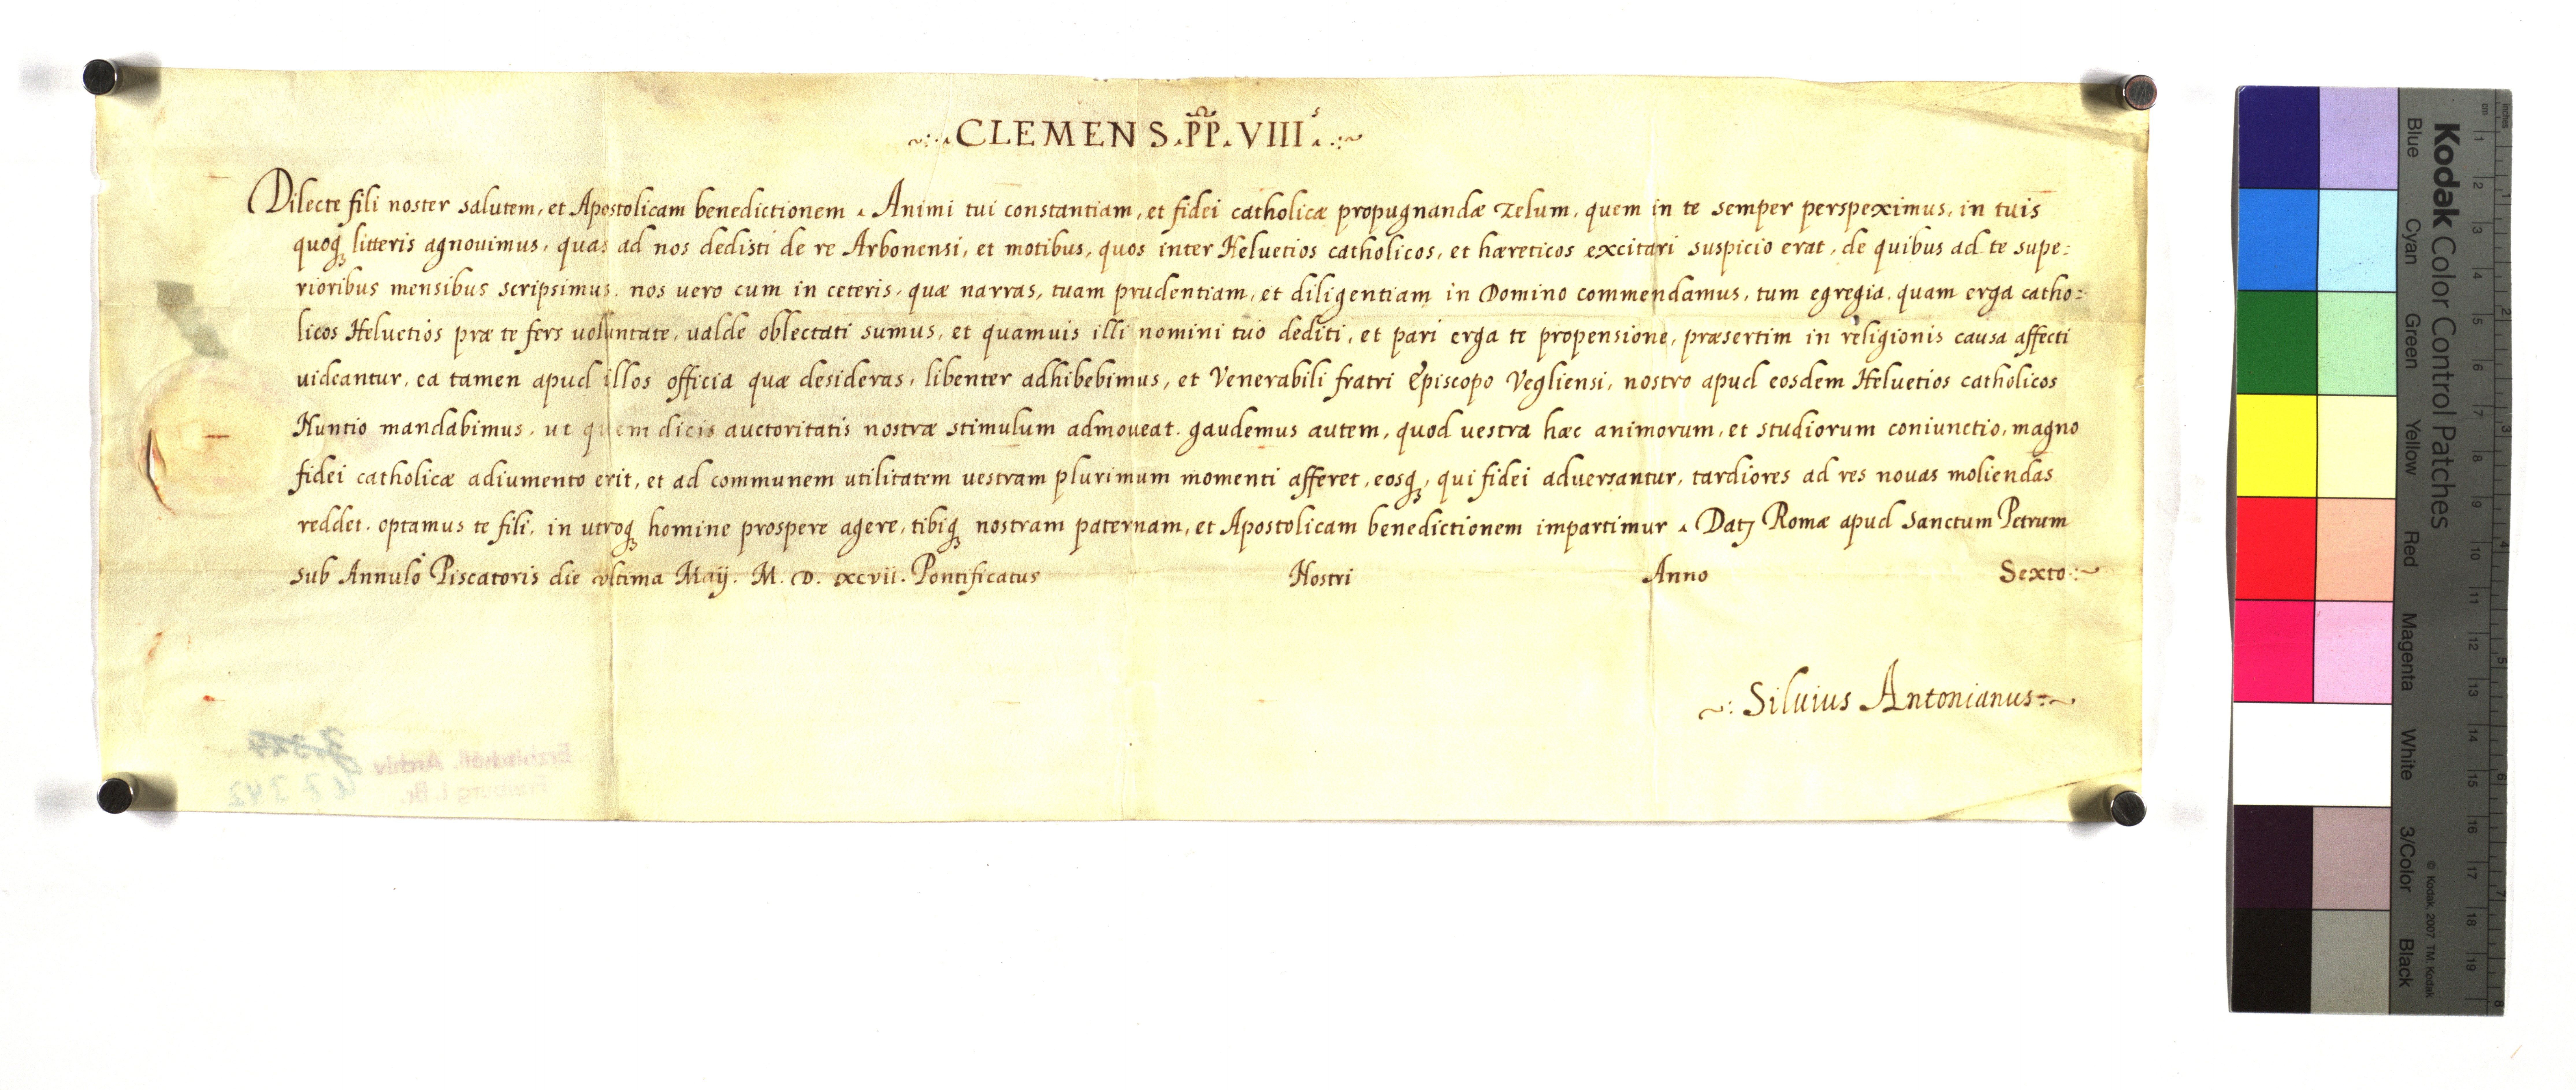 ~:·.CLEMENS.PP.VIIIˢ..:~
Dilecte fili noster salutem, et Apostolicam benedictionem . Animi tui constantiam, et fidei catholicæ propugnandæ zelum, quem in te semper perspeximus, in tuis
quoqꝫ litteris agnouimus, quas ad nos dedisti de re Arbonensi, et motibus, quos inter Heluetios catholicos, et hæreticos excitari suspicio erat, de quibus ad te supe:
rioribus mensibus scripsimus. nos uero cum in ceteris, quæ narras, tuam prudentiam, et diligentiam in Domino commendamus, tum egregia, quam erga catho:
licos Heluetios præ te fers uoluntate, ualde oblectati sumus, et quamuis illi nomini tuo dediti, et pari erga te propensione, præsertim in religionis causa affecti
uideantur, ea tamen apud illos officia quæ desideras, libenter adhibebimus, et Venerabili fratri Episcopo Vegliensi, nostro apud eosdem Heluetios catholicos
Nuntio mandabimus, ut quem dicis auctoritatis nostræ stimulum admoueat. gaudemus autem, quod uestra hæc animorum, et studiorum coniunctio, magno
fidei catholicæ adiumento erit, et ad communem utilitatem uestram plurimum momenti afferet, eosqꝫ, qui fidei aduersantur, tardiores ad res nouas moliendas
reddet. optamus te fili, in utroqꝫ homine prospere agere, tibiqꝫ nostram paternam, et Apostolicam benedictionem impartimur . Datꝫ Romæ apud Sanctum Petrum
sub Annulo Piscatoris die ultima Maij. M. D. xcvii. Pontificatus Nostri Anno Sexto:~
~: Siluius Antonianus:~
Erzbischöfl. Archiv
Freiburg i. Br.
Kodak Color Control Patches
Blue Cyan Green Yellow Red Magenta White 3/Color Black
© Kodak, 2007 TM: Kodak
inches 1 2 3 4 5 6 7 8
cm 1 2 3 4 5 6 7 8 9 10 11 12 13 14 15 16 17 18 19